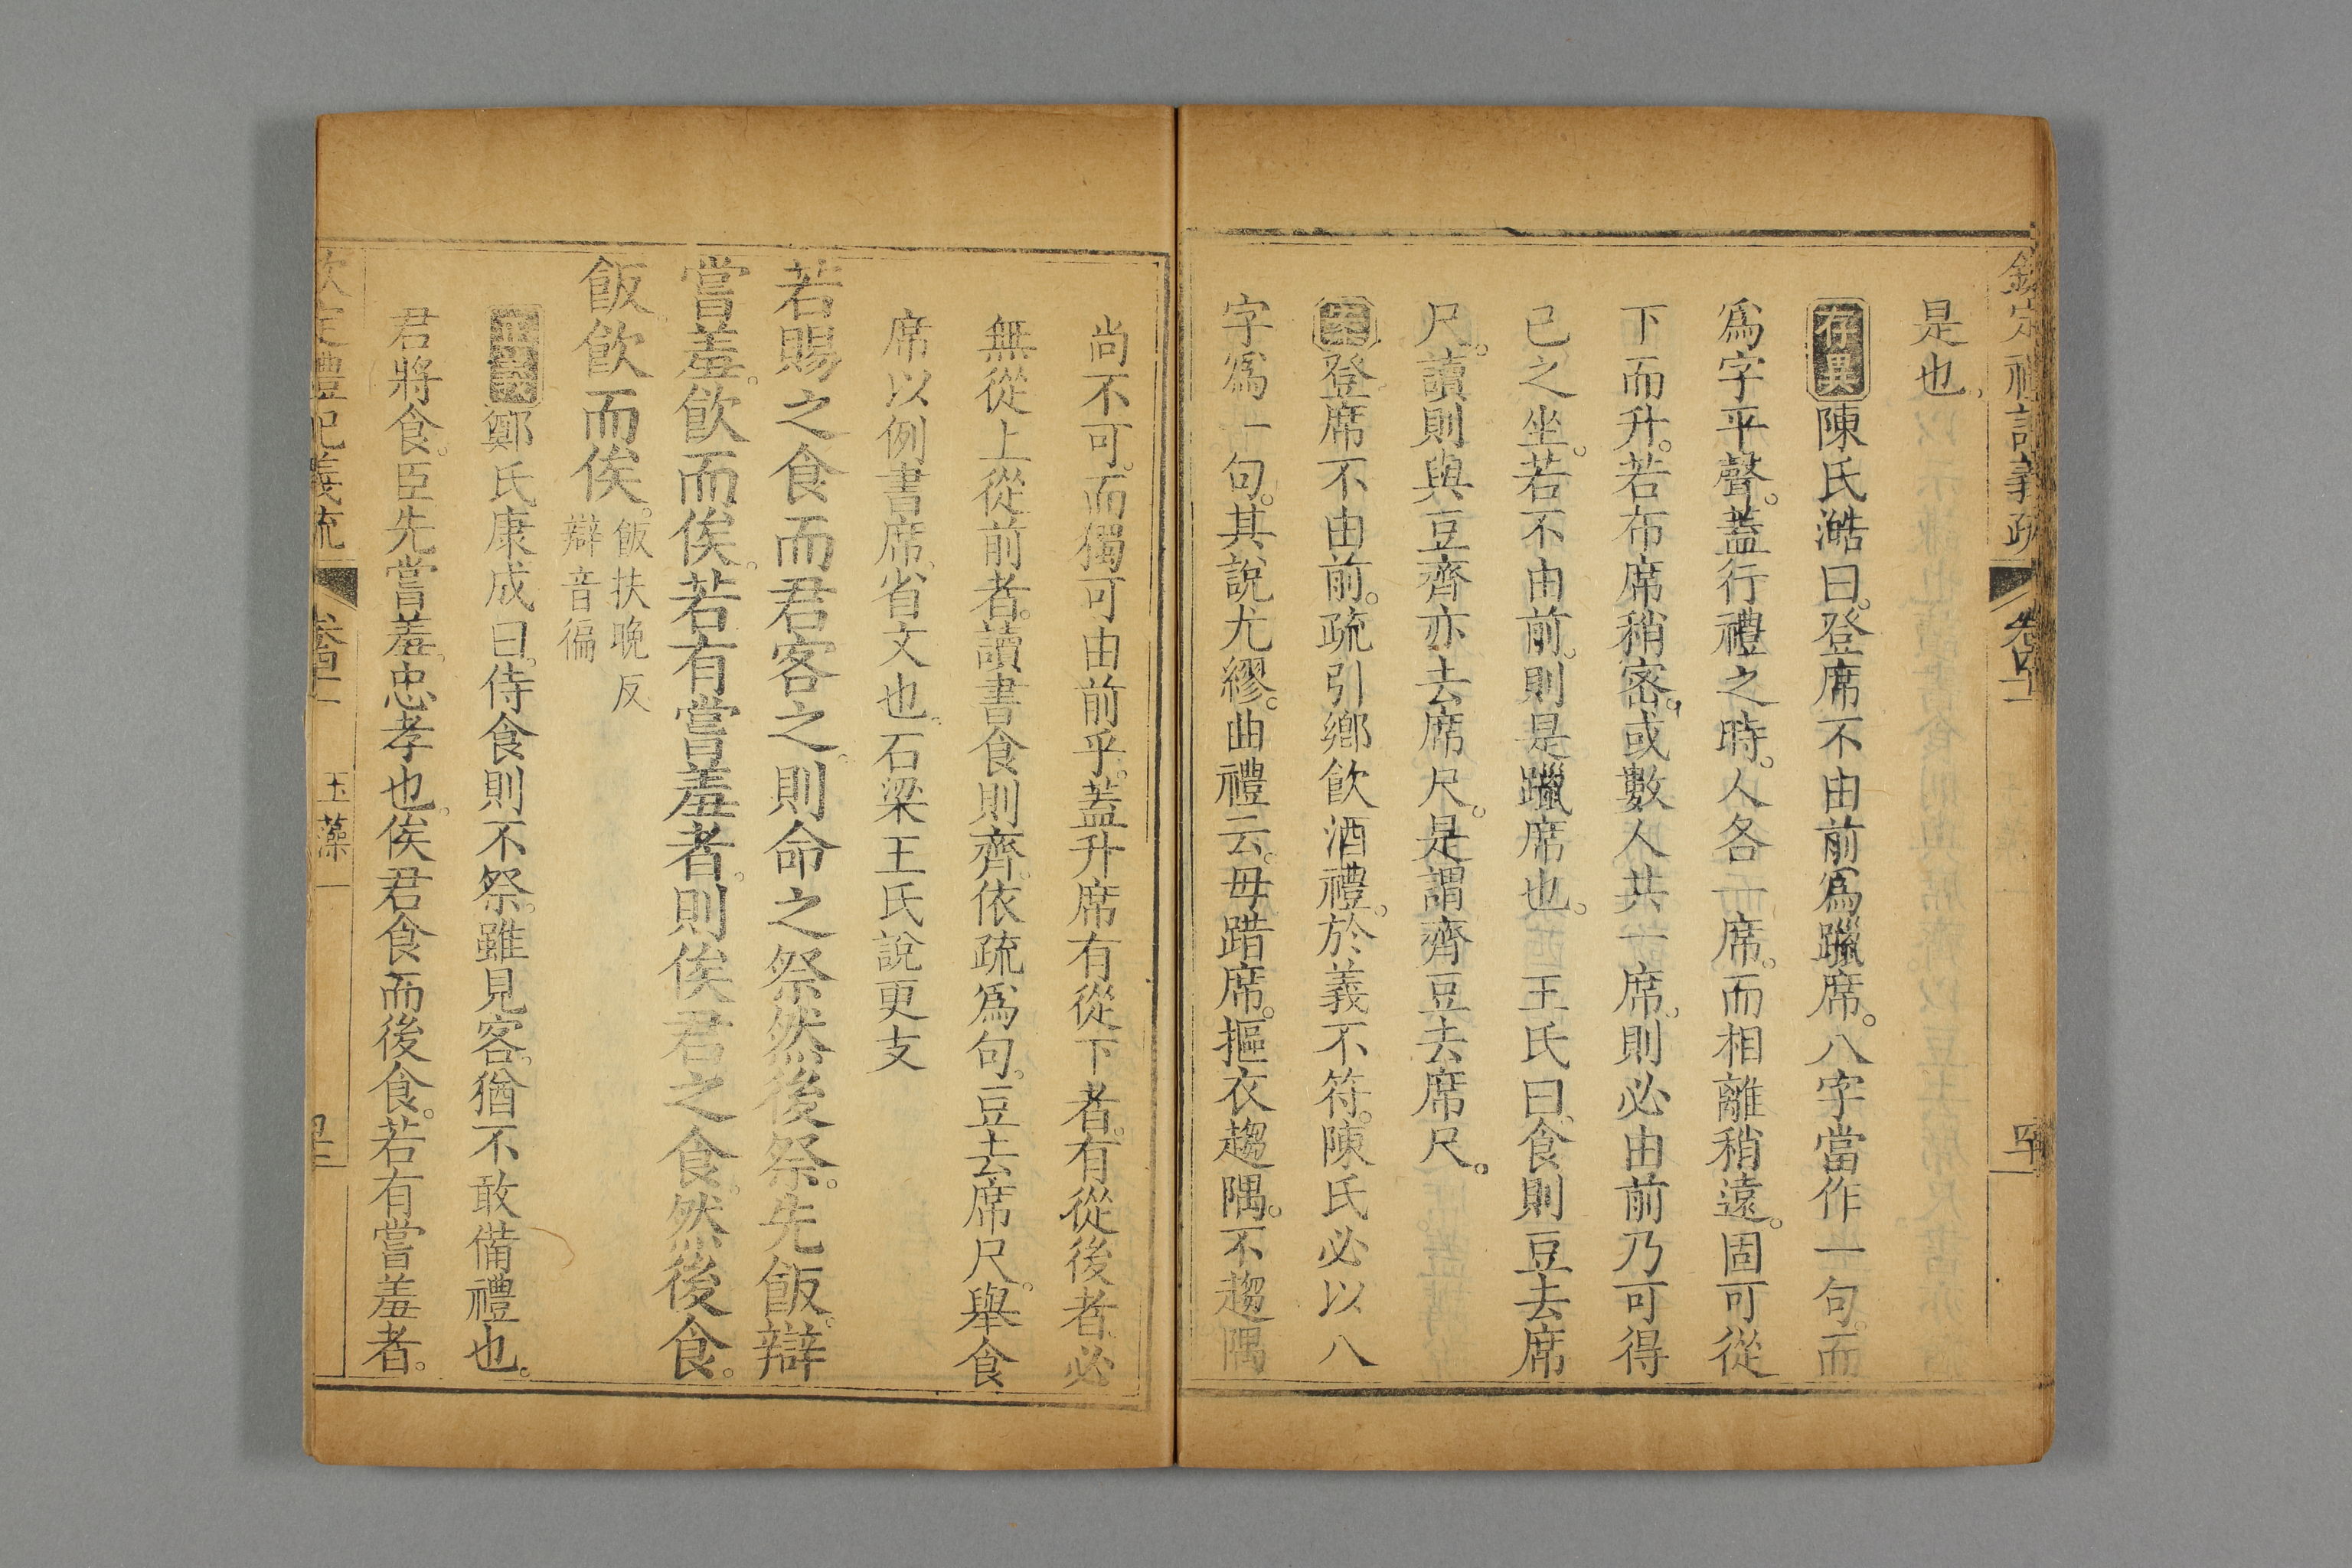 欽定禮記義疏 卷四十一 四十
是也
存異陳氏澔曰登席不由前爲躐席。八字當作一句。而
爲字平聲。蓋行禮之時。人各一席。而相離稍遠。固可從
下而升。若布席稍密。或數人共一席。則必由前乃可得
已之坐。若不由前。則是躐席也。 王氏曰食則豆去席
尺。讀則與豆齊亦去席尺。是謂齊豆去席尺。
登席不由前。疏引鄉飲酒禮。於義不符。陳氏必以八
字爲一句。其說尤繆。曲禮云。毋踖席。摳衣趨隅。不趨隅
尚不可。而獨可由前乎。蓋升席有從下者。有從後者。必
無從上從前者。讀書食則齊。依疏爲句。豆去席尺。舉食
席以例書席。省文也。石梁王氏說更支
若賜之食而君客之。則命之祭然後祭。先飯。辯
嘗羞。飲而俟。若有嘗羞者。則俟君之食。然後食。
飯飲而俟。飯扶晚反
辯音徧
正義鄭氏康成曰。侍食則不祭。雖見客。猶不敢備禮也。
君將食。臣先嘗羞。忠孝也。俟君食而後食。若有嘗羞者。
欽定禮記義疏 卷四十一 玉藻